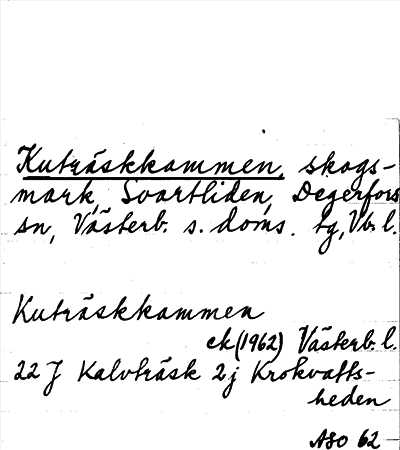 Kuträskkammen, skogs-
mark, Svartliden, Degerfors
sn, Västerb. s. doms. tg, Vb. l.
Kuträskkammen
ek (1962) Västerb. l.
22 J Kalvträsk 2 j Krokvatts-
heden
ASO 62